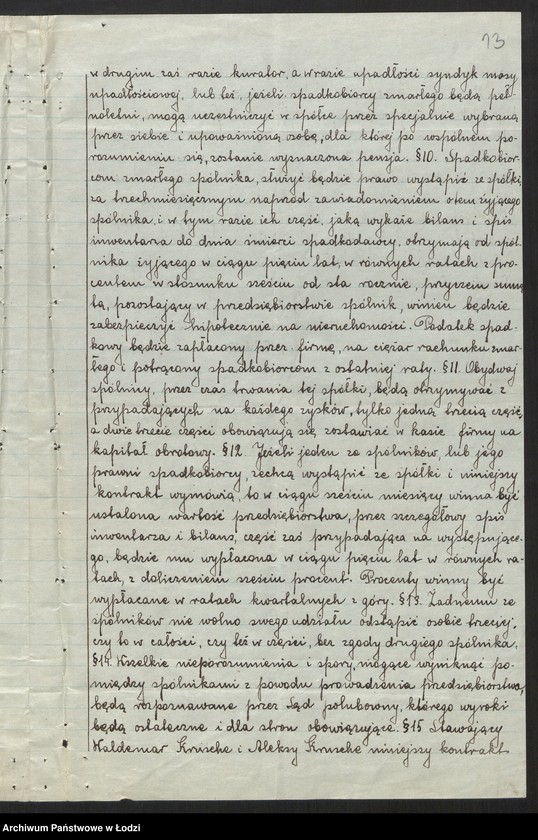 13
w drugim zaś razie kurator, a w razie upadłości syndyk masy
upadłościowej, lub też, jeżeli spadkobiercy zmarłego będą peł-
noletni, mogą uczestniczyć w spółce przez specjalnie wybraną
przez siebie i upoważnioną osobę, dla której po wspólnem po-
rozumieniu się, zostanie wyznaczona pensja. §10. Spadkobier-
com zmarłego spólnika, służyć będzie prawo wystąpić ze spółki,
za trzechmiesięcznym naprzód zawiadomieniem o tem żyjącego
spólnika, i w tym razie ich część, jaką wykaże bilans i spis
inwentarza do dnia śmierci spadkodawcy, otrzymają od spól-
nika żyjącego w ciągu pięciu lat, w równych ratach z pro-
centem w stosunku sześciu od sta rocznie, przyczem sumę
tą, pozostający w przedsiębiorstwie spólnik, winien będzie
zabezpieczyć hipotecznie na nieruchomości. Podatek spad-
kowy będzie zapłacony przez firmę, na ciężar rachunku zmar-
łego i potrącony spadkobiercom z ostatniej raty. §11. Obydwaj
spólnicy, przez czas trwania tej spółki, będą otrzymywać z
przypadających na każdego zysków, tylko jedną trzecią część,
a dwie trzecie części obowiązują się zostawiać w kasie firmy na
kapitał obrotowy. §12. Jeżeli jeden ze spólników, lub jego
prawni spadkobiercy, zechcą wystąpić ze spółki i niniejszy
kontrakt wymówią, to w ciągu sześciu miesięcy winna być
ustalona wartość przedsiębiorstwa, przez szczegółowy spis
inwentarza i bilans, część zaś przypadająca na występujące-
go, będzie mu wypłacona w ciągu pięciu lat w równych ra-
tach, z doliczeniem sześciu procent. Procenty winny być
wypłacane w ratach kwartalnych z góry. §13. Żadnemu ze
spólników nie wolno swego udziału odstąpić osobie trzeciej,
czy to w całości, czy też w części, bez zgody drugiego spólnika.
§14. Wszelkie nieporozumienia i spory, mogące wyniknąć po-
między spólnikami z powodu prowadzenia przedsiębiorstwa,
będą rozpoznawane przez Sąd polubowny, którego wyroki
będą ostateczne i dla stron obowiązujące. §15 Stawający
Waldemar Krusche i Aleksy Krusche niniejszy kontrakt
Archiwum Państwowe w Łodzi